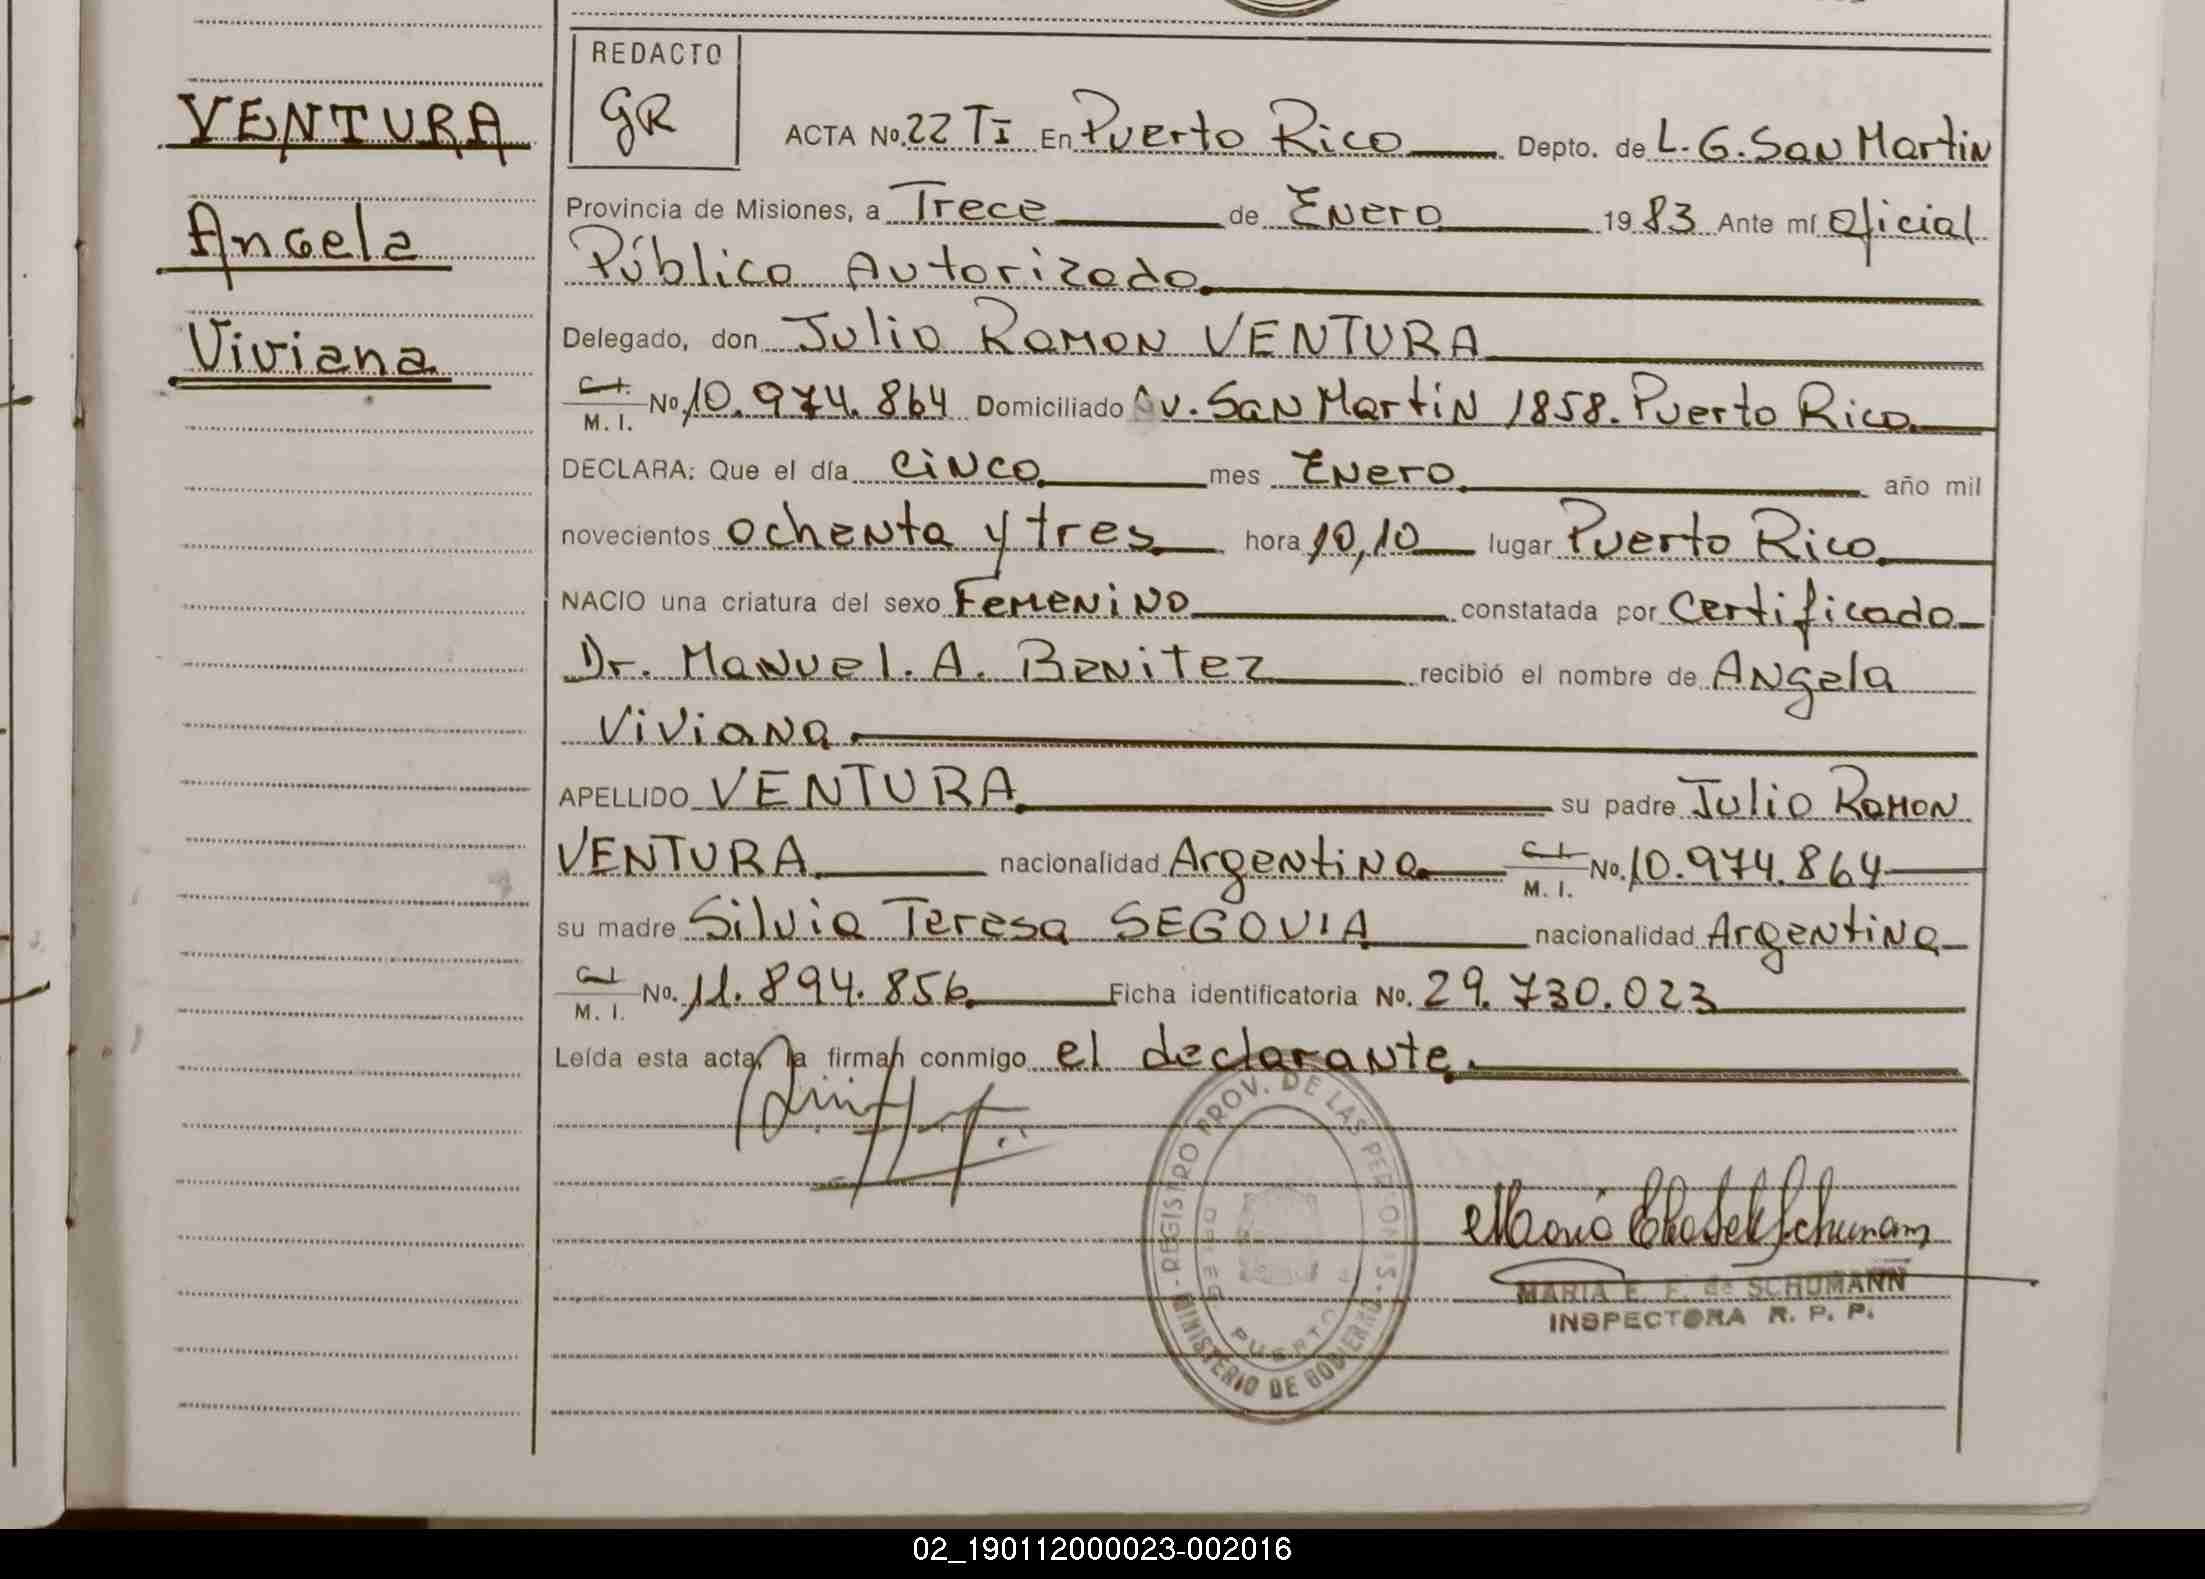 VENTURA
Angela
Viviana
REDACTO
GR
ACTA No. 22 TI En Puerto Rico Depto. de L. G. San Martin
Provincia de Misiones, a Trece de Enero 1983 Ante mí Oficial
Público Autorizado
Delegado, don Julio Ramon VENTURA
C.I.
M. I. No. 10.974.864 Domiciliado Av. San Martin 1858. Puerto Rico
DECLARA: Que el día cinco mes Enero año mil
novecientos ochenta y tres hora 10,10 lugar Puerto Rico
NACIO una criatura del sexo Femenino constatada por Certificado
Dr. Manuel. A. Benitez recibió el nombre de Angela
Viviana
APELLIDO VENTURA su padre Julio Ramon
VENTURA nacionalidad Argentina C.I. M. I. No. 10.974.864
su madre Silvia Teresa SEGOVIA nacionalidad Argentina
C.I.
M. I. No. 11.894.856 Ficha identificatoria No. 29.730.023
Leída esta acta, la firman conmigo el declarante.
REGISTRO PROV. DE LAS PERSONAS
MINISTERIO DE GOBIERNO
PUERTO
MARIA E. F. de SCHUMANN
INSPECTORA R. P. P.
02_190112000023-002016